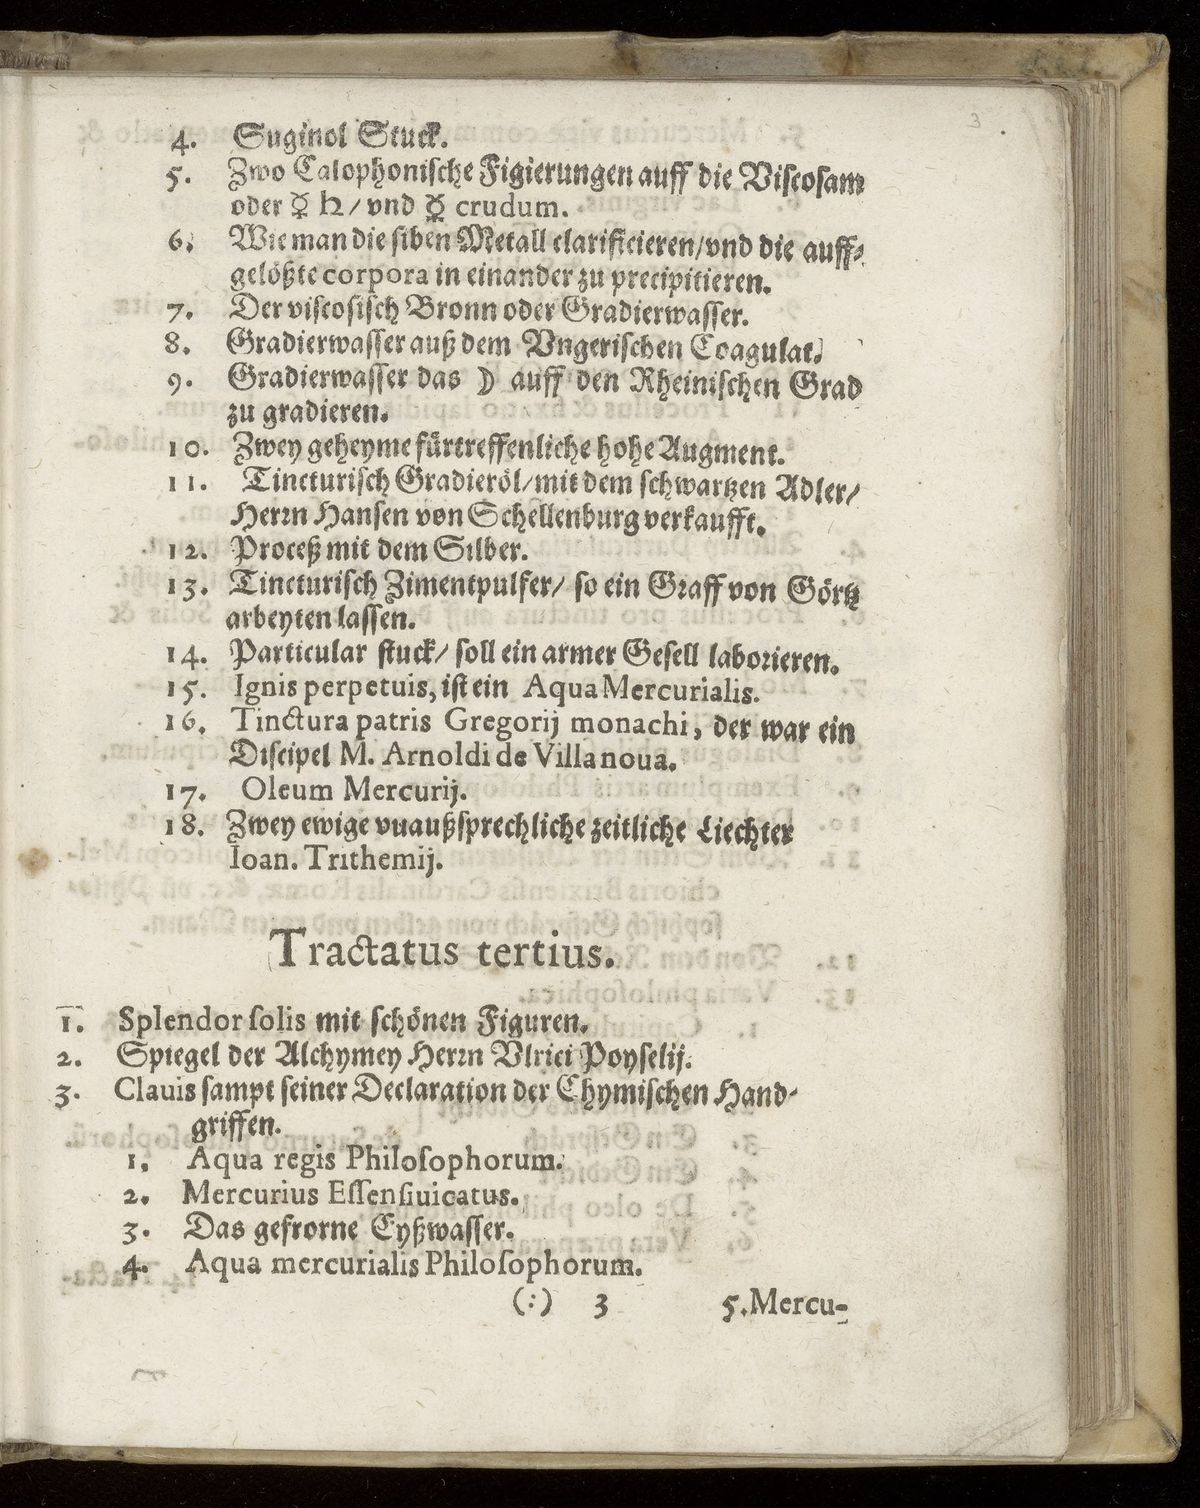 3
4. Suginol Stuck.
5. Zwo Calophonische Figierungen auff die Viscosam
oder ☿ ♄/ vnd ☿ crudum.
6. Wie man die siben Metall clarificieren/vnd die auff-
gelößte corpora in einander zu precipitieren.
7. Der viscosisch Bronn oder Gradierwasser.
8. Gradierwasser auß dem Vngerischen Coagulat.
9. Gradierwasser das ☽ auff den Rheinischen Grad
zu gradieren.
10. Zwey geheyme fürtreffenliche hohe Augment.
11. Tincturisch Gradieröl/mit dem schwartzen Adler/
Herrn Hansen von Schellenburg verkaufft.
12. Proceß mit dem Silber.
13. Tincturisch Zimentpulfer/ so ein Graff von Görtz
arbeyten lassen.
14. Particular stuck/ soll ein armer Gesell laborieren.
15. Ignis perpetuis, ist ein Aqua Mercurialis.
16. Tinctura patris Gregorij monachi, der war ein
Discipel M. Arnoldi de Villanoua.
17. Oleum Mercurij.
18. Zwey ewige vnaußsprechliche zeitliche Liechter
Ioan. Trithemij.
Tractatus tertius.
1. Splendor solis mit schönen Figuren.
2. Spiegel der Alchymey Herrn Vlrici Poyselij.
3. Clauis sampt seiner Declaration der Chymischen Hand-
griffen.
1. Aqua regis Philosophorum.
2. Mercurius Essensiuicatus.
3. Das gefrorne Eyßwasser.
4. Aqua mercurialis Philosophorum.
(:) 3 5. Mercu-